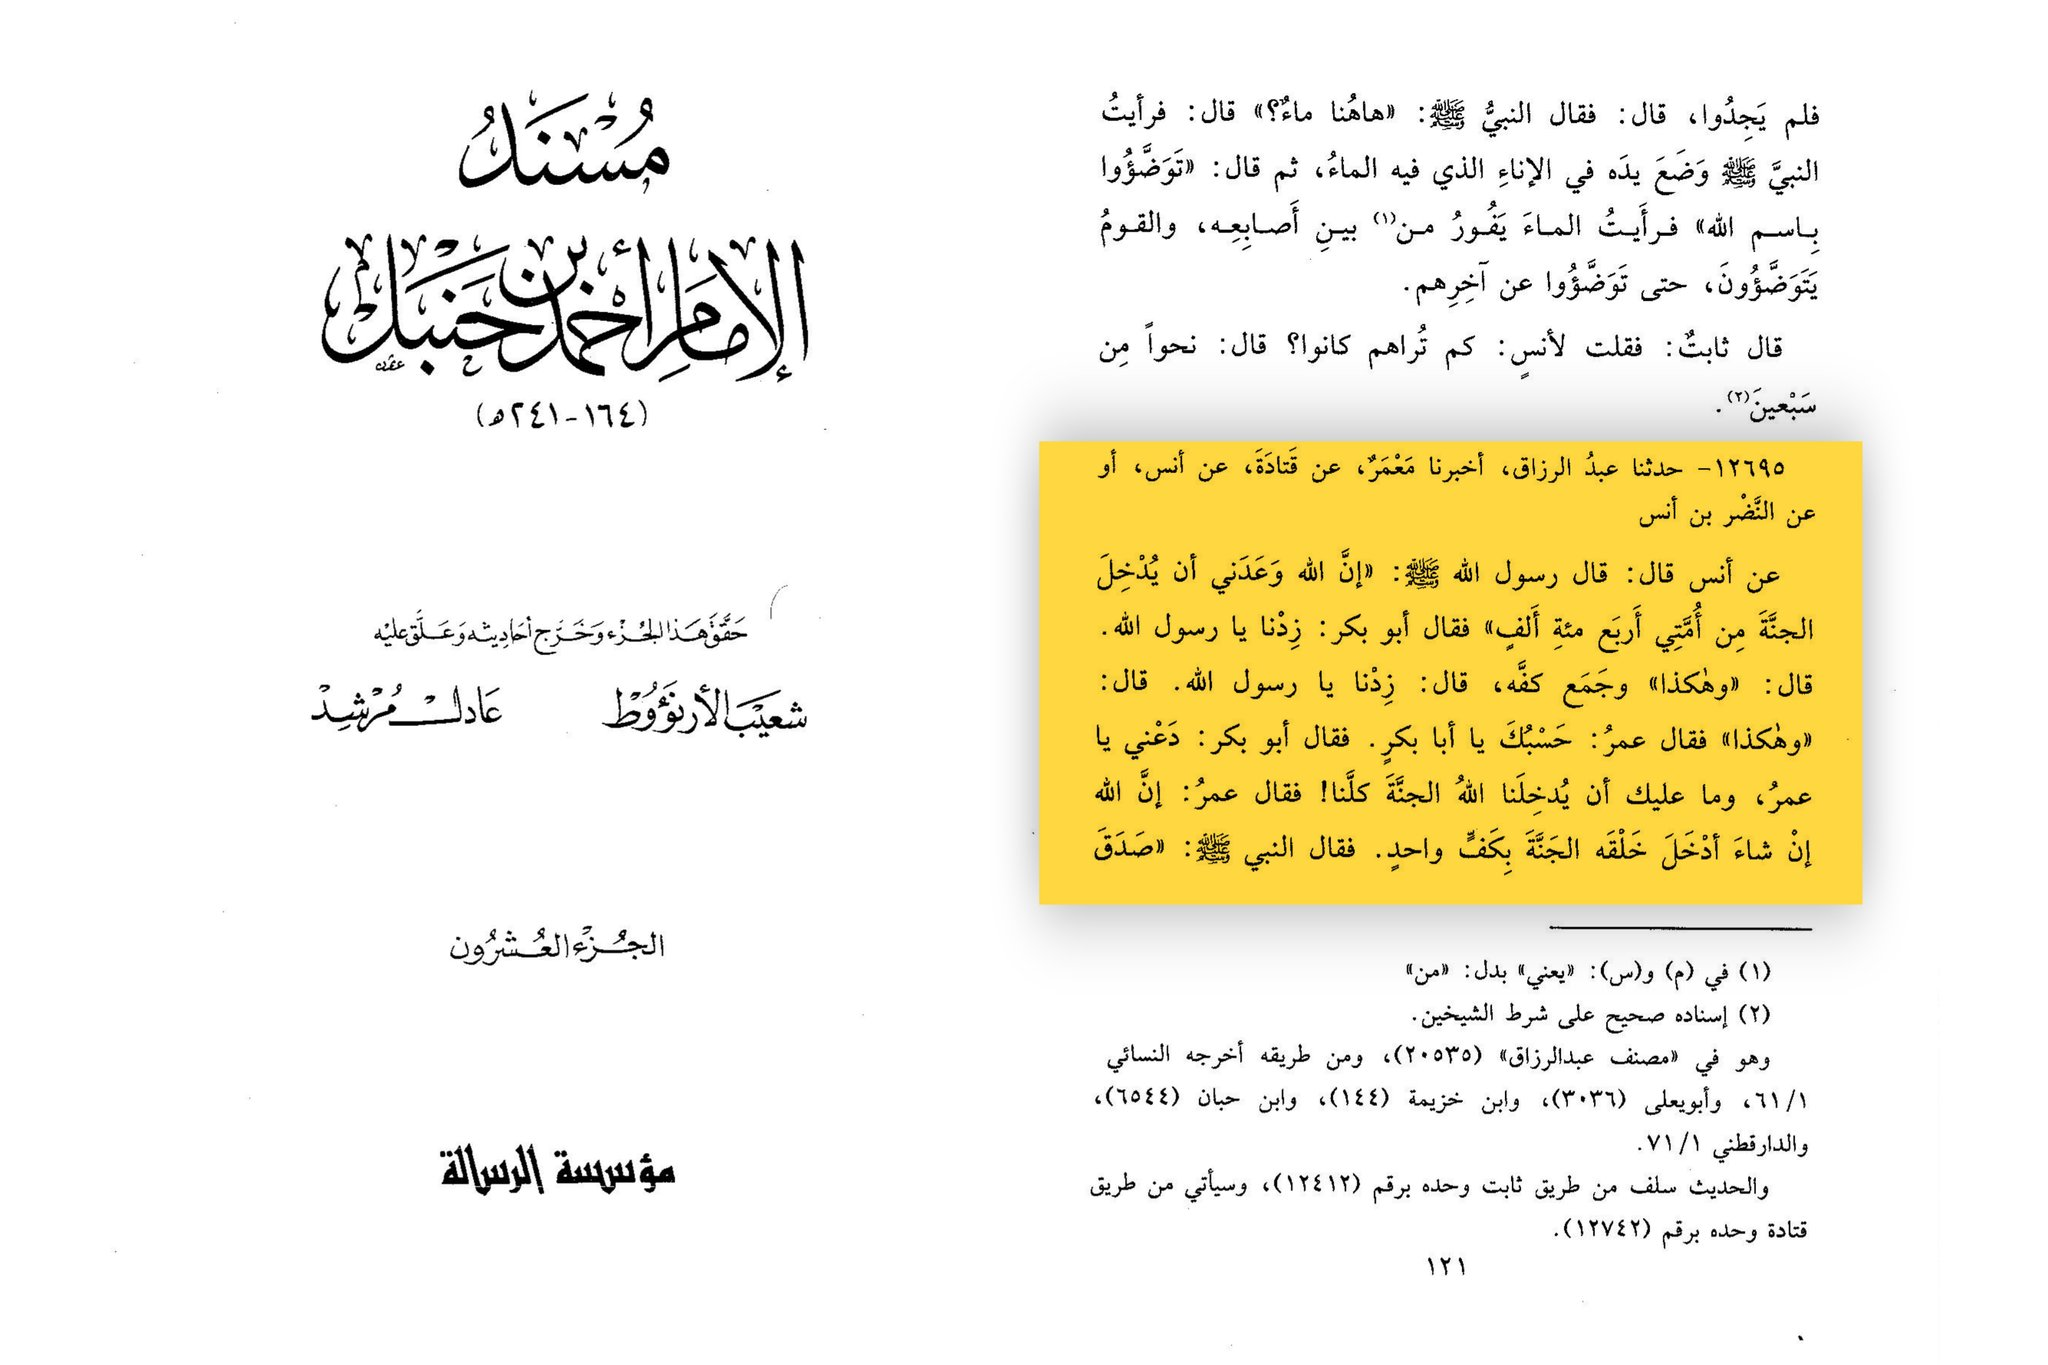 مُسْنَدُ
الإمَامِ أحْمَد بْن حَنْبَل
(١٦٤-٢٤١هـ)
حَقَّقَ هَذا الجُزْء وَخَرَّج أحَادِيثه وَعَلَّق عَليْه
شعَيبَ الأرنؤوط عَادل مُرْشِد
الجُزء العُشرُون
مؤسسة الرسالة
فلم يَجِدُوا، قال: فقال النبيُّ ﷺ: «هاهُنا ماءٌ؟» قال: فرأيتُ
النبيَّ ﷺ وَضَعَ يدَه في الإناءِ الذي فيه الماءُ، ثم قال: «تَوَضَّؤُوا
بِاسم الله» فرأَيتُ الماءَ يَفُورُ من(١) بينِ أَصابِعِه، والقومُ
يَتَوَضَّؤُونَ، حتى تَوَضَّؤُوا عن آخِرِهم.
قال ثابتٌ: فقلت لأنسٍ: كم تُراهم كانوا؟ قال: نحواً مِن
سَبْعينَ(٢).
١٢٦٩٥- حدثنا عبدُ الرزاق، أخبرنا مَعْمَرٌ، عن قَتادَةَ، عن أنس، أو
عن النَّضْر بن أنس
عن أنس قال: قال رسول الله ﷺ: «إنَّ الله وَعَدَني أن يُدْخِلَ
الجنَّةَ مِن أُمَّتِي أَربَع مئةِ أَلفٍ» فقال أبو بكر: زِدْنا يا رسول الله.
قال: «وهٰكذا» وجَمَع كفَّه، قال: زِدْنا يا رسول الله. قال:
«وهٰكذا» فقال عمرُ: حَسْبُكَ يا أبا بكرٍ. فقال أبو بكر: دَعْني يا
عمرُ، وما عليك أن يُدخِلَنا اللهُ الجنَّةَ كلَّنا! فقال عمرُ: إنَّ الله
إنْ شاءَ أدْخَلَ خَلْقَه الجَنَّةَ بِكَفٍّ واحدٍ. فقال النبي ﷺ: «صَدَقَ
(١) في (م) و(س): «يعني» بدل: «من»
(٢) إسناده صحيح على شرط الشيخين.
وهو في «مصنف عبدالرزاق» (٢٠٥٣٥)، ومن طريقه أخرجه النسائي
٦١/١، وأبويعلى (٣٠٣٦)، وابن خزيمة (١٤٤)، وابن حبان (٦٥٤٤)،
والدارقطني ٧١/١.
والحديث سلف من طريق ثابت وحده برقم (١٢٤١٢)، وسيأتي من طريق
قتادة وحده برقم (١٢٧٤٢).
١٢١